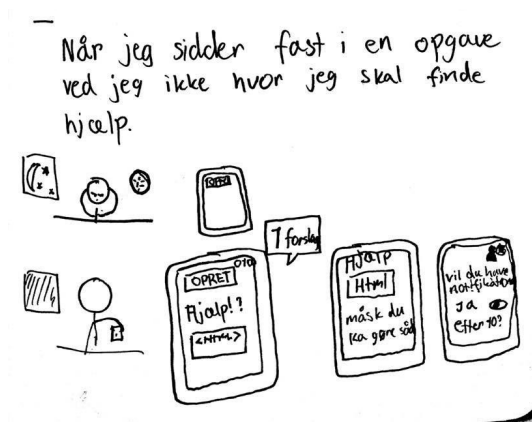 Når jeg sidder fast i en opgave
ved jeg ikke hvor jeg skal finde
hjælp.
1 forslag
OPRET
Hjælp!?
<HTML>
Hjælp
Html
måsk du
ka gøre såd
vil du have
notifikation
JA
efter 10?